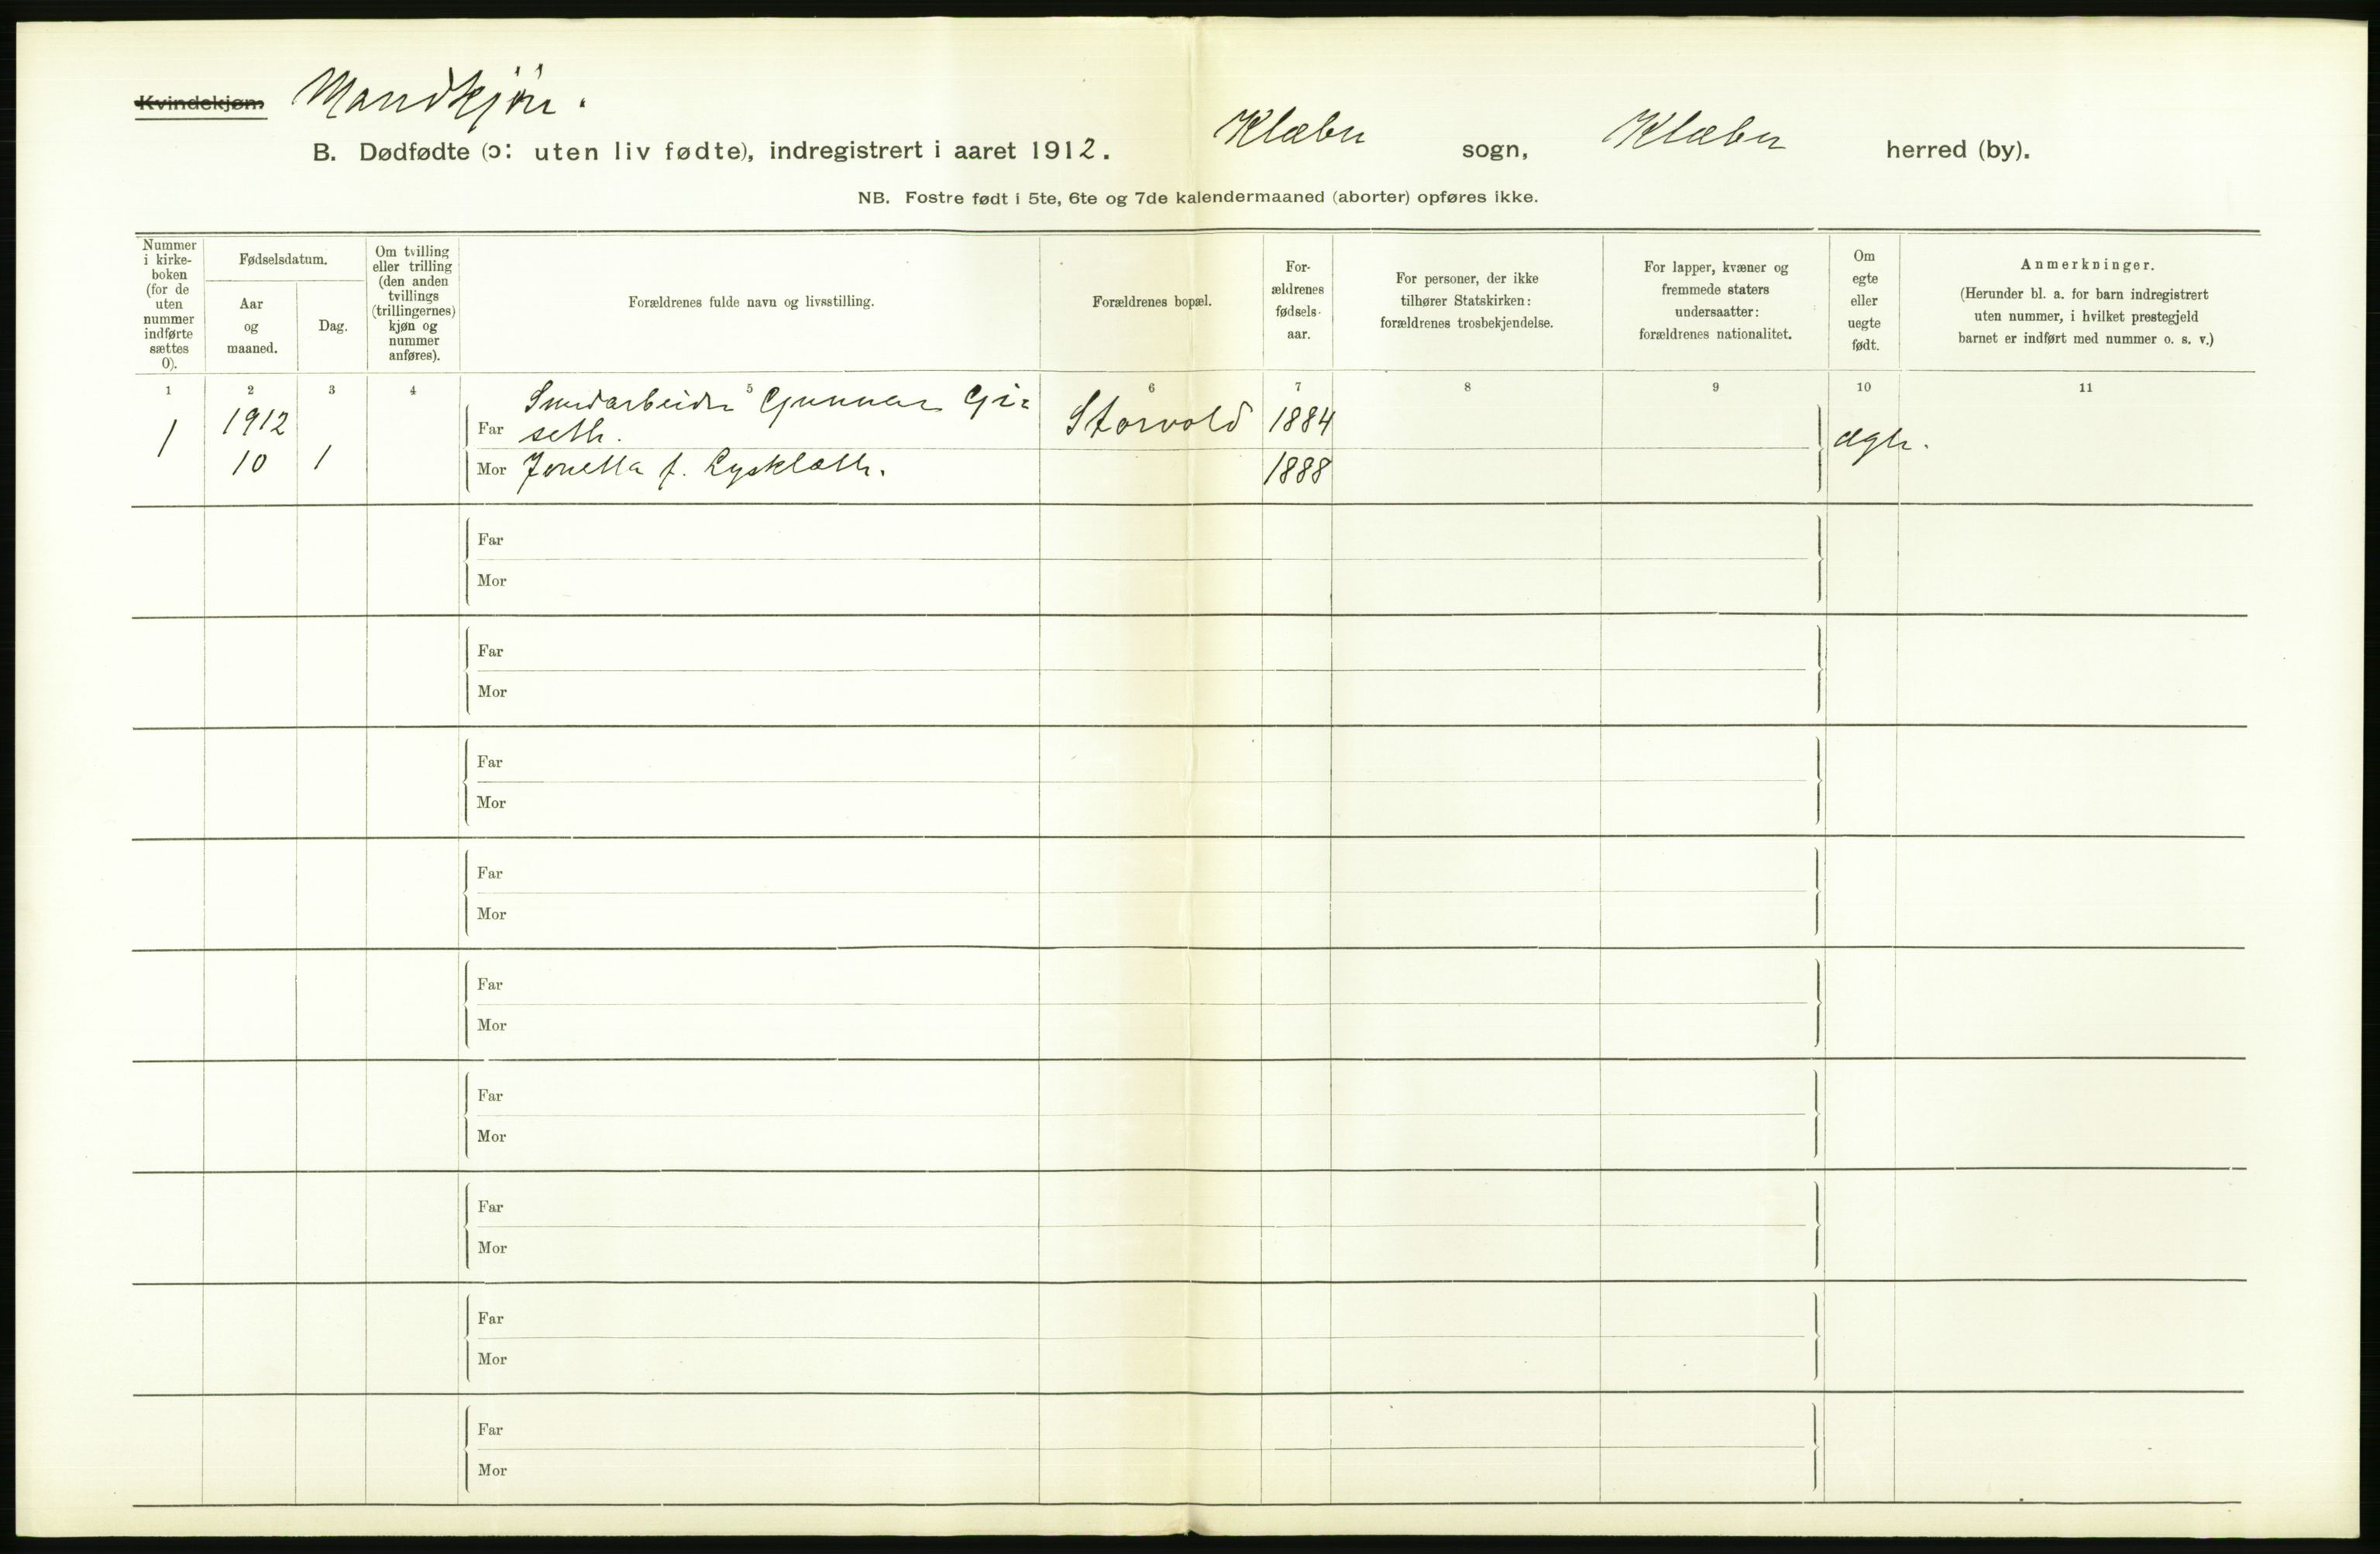 Kvindekjøn. Mandkjøn.
B. Dødfødte (ɔ: uten liv fødte), indregistrert i aaret 1912. Klæbu sogn, Klæbu herred (by).
NB. Fostre født i 5te, 6te og 7de kalendermaaned (aborter) opføres ikke.
Nummer
i kirke-
boken
(for de
uten
nummer
indførte
sættes
0).
Fødselsdatum.
Aar
og
maaned.
Dag.
Om tvilling
eller trilling
(den anden
tvillings
(trillingernes)
kjøn og
nummer
anføres).
Forældrenes fulde navn og livsstilling.
Forældrenes bopæl.
For-
ældrenes
fødsels-
aar.
For personer, der ikke
tilhører Statskirken:
forældrenes trosbekjendelse.
For lapper, kvæner og
fremmede staters
undersaatter:
forældrenes nationalitet.
Om
egte
eller
uegte
født.
Anmerkninger.
(Herunder bl. a. for barn indregistrert
uten nummer, i hvilket prestegjeld
barnet er indført med nummer o. s. v.)
1 2 3 4 5 6 7 8 9 10 11
1 1912 10 1
Far Smedarbeider Gunnar Gi=
seth. Storvold 1884 ægte.
Mor Jonetta f. Lysklætt. 1888
Far
Mor
Far
Mor
Far
Mor
Far
Mor
Far
Mor
Far
Mor
Far
Mor
Far
Mor
Far
Mor